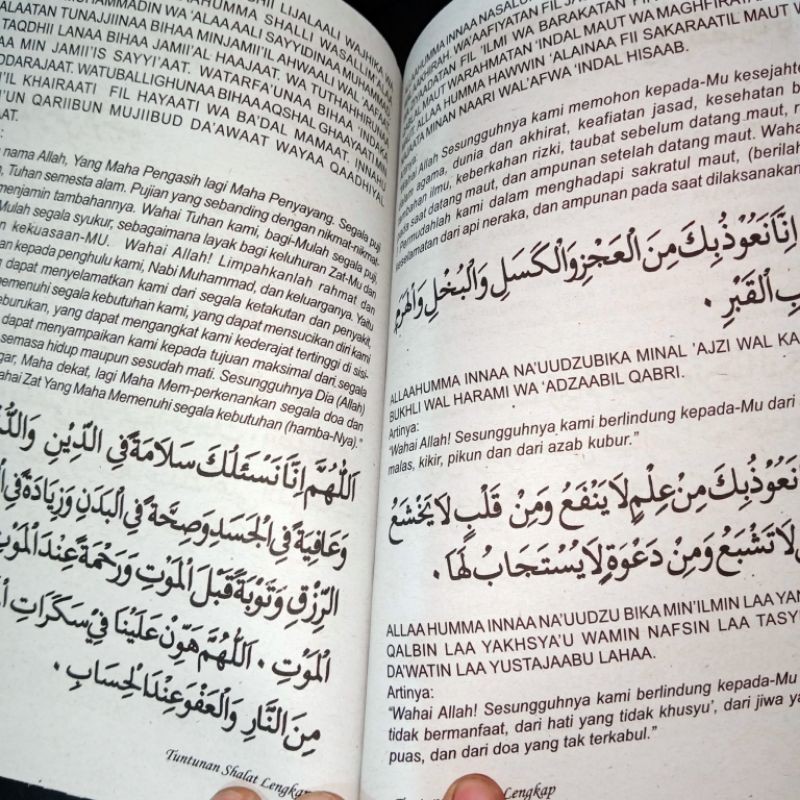 LIJALAALI WAJHIKA
SHALLI WASALLIM
MUHAMMADIN WA 'ALAAALI SAYYIDINAA MUHAMMA
ALAATAN TUNAJJIINAA BIHAA MINJAMII'IL AHWAALI WAL
TAQDHII LANAA BIHAA JAMII'AL HAAJAAT. WA TUTHAHHIRUNAA
AA MIN JAMII'IS SAYYI'AAT. WATARFA'UNAA BIHAA 'INDAKA
DDARAJAAT. WATUBALLIGHUNAA BIHAA AQSHAL GHAAYAATI MIN
'IL KHAIRAATI FIL HAYAATI WA BA'DAL MAMAAT. INNAHU
'UN QARIIBUN MUJIIBUD DA'AWAAT WAYAA QAADHIYAL
AAT.
nama Allah, Yang Maha Pengasih lagi Maha Penyayang. Segala puji
, Tuhan semesta alam. Pujian yang sebanding dengan nikmat-nikmat-
menjamin tambahannya. Wahai Tuhan kami, bagi-Mulah segala puji,
Mulah segala syukur, sebagaimana layak bagi keluhuran Zat-Mu dan
kekuasaan-MU. Wahai Allah! Limpahkanlah rahmat dan
an kepada penghulu kami, Nabi Muhammad, dan keluarganya. Yaitu
dapat menyelamatkan kami dari segala ketakutan dan penyakit,
memenuhi segala kebutuhan kami, yang dapat mensucikan diri kami
eburukan, yang dapat mengangkat kami kederajat tertinggi di sisi-
dapat menyampaikan kami kepada tujuan maksimal dari segala
semasa hidup maupun sesudah mati. Sesungguhnya Dia (Allah)
gar, Maha dekat, lagi Maha Mem-perkenankan segala doa dan
ahai Zat Yang Maha Memenuhi segala kebutuhan (hamba-Nya)."
اَللّٰهُمَّ اِنَّا نَسْئَلُكَ سَلَامَةً فِى الدِّيْنِ
وَعَافِيَةً فِى الْجَسَدِ وَصِحَّةً فِى الْبَدَنِ وَزِيَادَةً فِى
الرِّزْقِ وَتَوْبَةً قَبْلَ الْمَوْتِ وَرَحْمَةً عِنْدَ الْمَوْتِ
الْمَوْتِ. اَللّٰهُمَّ هَوِّنْ عَلَيْنَا فِيْ سَكَرَاتِ
مِنَ النَّارِ وَالْعَفْوَ عِنْدَ الْحِسَابِ.
Tuntunan Shalat Lengkap
ALLAAHUMMA INNAA NASALU
AKHIRAH, WA'AAFIYATAN FIL
YAADATAN FIL 'ILMI WA BARAKATAN
MAUT WARAHMATAN 'INDAL MAUT WA MAGHFIRATA
ALLAA HUMMA HAWWIN 'ALAINAA FII SAKARAATIL MAUT
AATA MINAN NAARI WAL'AFWA 'INDAL HISAAB.
Wahai Allah Sesungguhnya kami memohon kepada-Mu kesejahte
agama, dunia dan akhirat, keafiatan jasad, kesehatan b
ilmu, keberkahan rizki, taubat sebelum datang maut,
pada saat datang maut, dan ampunan setelah datang maut. Waha
Permudahlah kami dalam menghadapi sakratul maut, (berilah
keselamatan dari api neraka, dan ampunan pada saat dilaksanakan
اِنَّا نَعُوْذُ بِكَ مِنَ الْعَجْزِ وَالْكَسَلِ وَالْبُخْلِ وَالْهَرَمِ
بِ الْقَبْرِ.
ALLAAHUMMA INNAA NA'UUDZUBIKA MINAL 'AJZI WAL KA
BUKHLI WAL HARAMI WA 'ADZAABIL QABRI.
Artinya:
"Wahai Allah! Sesungguhnya kami berlindung kepada-Mu dari
malas, kikir, pikun dan dari azab kubur."
نَعُوْذُ بِكَ مِنْ عِلْمٍ لَا يَنْفَعُ وَمِنْ قَلْبٍ لَا يَخْشَعُ
لَا تَشْبَعُ وَمِنْ دَعْوَةٍ لَا يُسْتَجَابُ لَهَا.
ALLAA HUMMA INNAA NA'UUDZU BIKA MIN'ILMIN LAA YAN
QALBIN LAA YAKHSYA'U WAMIN NAFSIN LAA TASY
DA'WATIN LAA YUSTAJAABU LAHAA.
Artinya:
"Wahai Allah! Sesungguhnya kami berlindung kepada-Mu
tidak bermanfaat, dari hati yang tidak khusyu', dari jiwa ya
puas, dan dari doa yang tak terkabul."
Lengkap